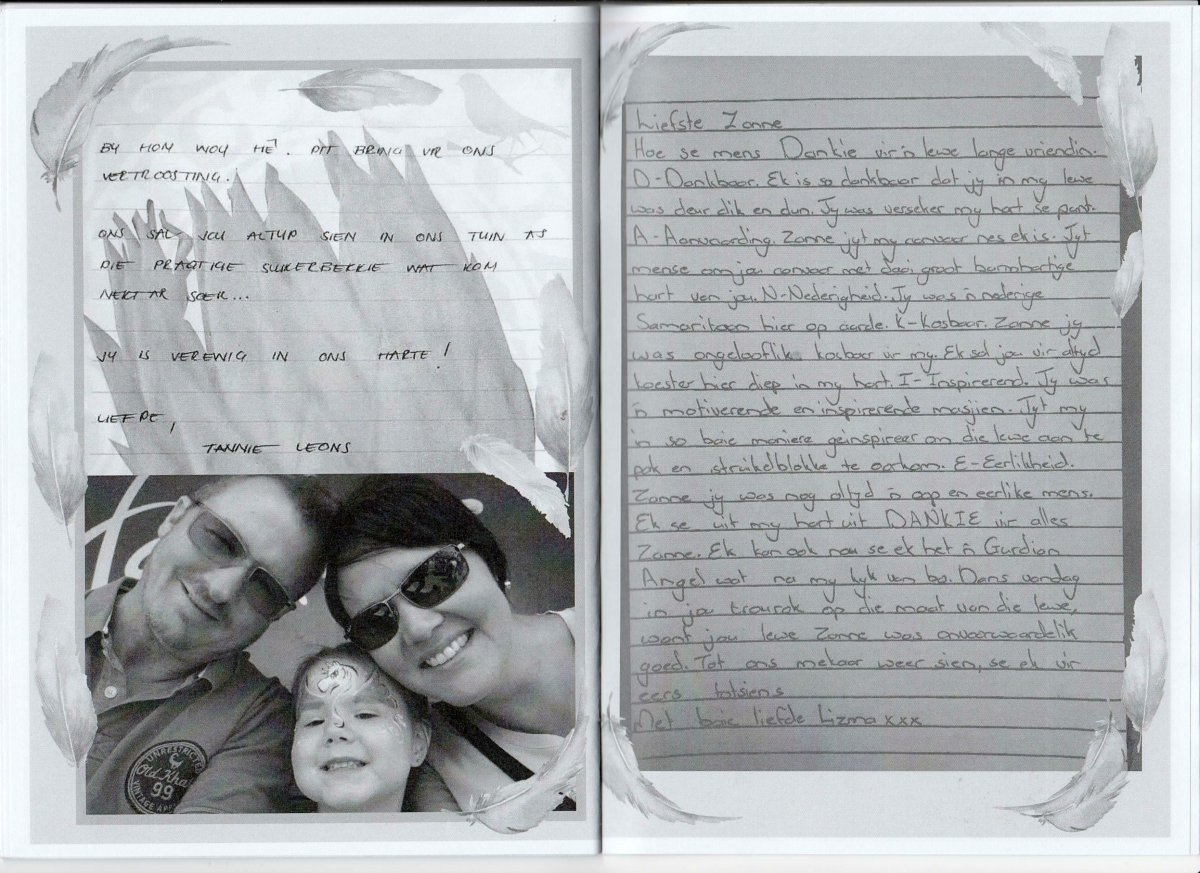 BY HOM WOU HÊ. DIT BRING VIR ONS
VERTROOSTING.
ONS SAL JOU ALTYD SIEN IN ONS TUIN AS
DIE PRAGTIGE SUIKERBEKKIE WAT KOM
NEKTAR SOEK...
JY IS VEREWIG IN ONS HARTE!
LIEFDE,
TANNIE LEONS
UNRESTRICTED
Old Khaki
99
VINTAGE
Liefste Zanne
Hoe se mens Dankie vir 'n lewe lange vriendin.
D-Dankbaar. Ek is so dankbaar dat jy in my lewe
was deur dik en dun. Jy was verseker my hart se punt.
A-Aanvaarding. Zanne jyt my aanvaar nes ek is. Jyt
mense om jou aanvaar met daai groot barmhartige
hart van jou. N-Nederigheid. Jy was 'n nederige
Samaritaan hier op aarde. K-Kosbaar. Zanne jy
was ongelooflik kosbaar vir my. Ek sal jou vir altyd
koester hier diep in my hart. I-Inspirerend. Jy was
'n motiverende en inspirerende masjien. Jyt my
in so baie maniere geinspireer om die lewe aan te
pak en struikelblokke te oorkom. E-Eerlikheid.
Zanne jy was nog altyd 'n oop en eerlike mens.
Ek se uit my hart uit DANKIE vir alles
Zanne. Ek kan ook nou se ek het 'n Gurdian
Angel wat na my kyk van bo. Dans vandag
in jou trourok op die maat van die lewe,
want jou lewe Zanne was onvoorwaardelik
goed. Tot ons mekaar weer sien, se ek vir
eers totsiens
Met baie liefde Lizma xxx